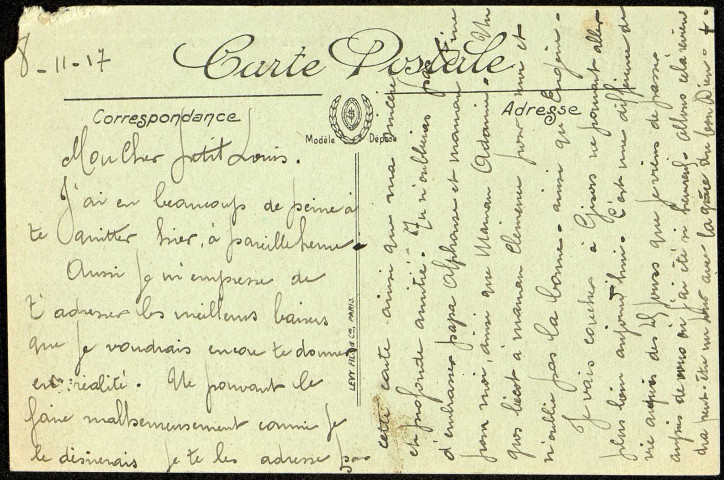 8-11-17
Carte Postale
Correspondance
Modèle Déposé
Adresse
LEVY FILS & Cie, PARIS
Mon Cher petit Louis.
J'ai eu beaucoup de peine à
te quitter hier, à pareille heure.
Aussi je m'empresse de
t'adresser les meilleurs baisers
que je voudrais encore te donner
en réalité. Ne pouvant le
faire malheureusement comme je
le désirerais je te les adresse par
cette carte ainsi que ma sincère
et profonde amitié. Tu n'oublieras pas
d'embrasser papa Alphonse et maman
pour moi, ainsi que Maman Adonnie. Un
gros bécot à maman Clémence pour moi et
n'oublie pas la bonne. ainsi qu'Eugénie.
Je vais coucher à Gisors ne pouvant aller
plus loin aujourd'hui. C'est une différence de
vie auprès des jours que je viens de passer
auprès de vous où j'ai été si heureux. Allons cela reviendra
peut-être un jour avec la grâce du bon Dieu.